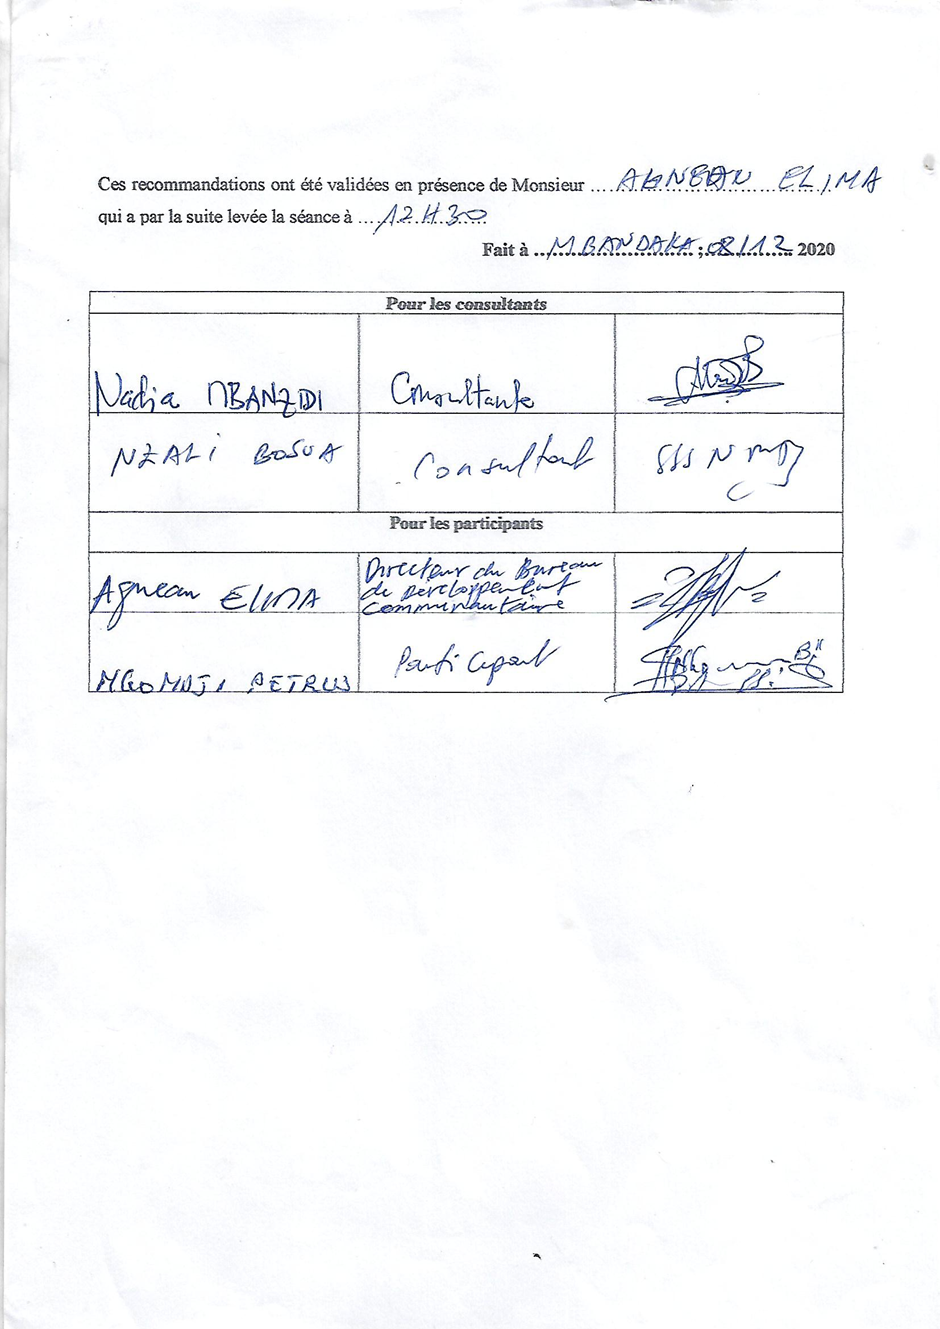 Ces recommandations ont été validées en présence de Monsieur .... AGNEAN ELIMA
qui a par la suite levée la séance à .... 12H30
Fait à ..MBANDAKA; 08/12.. 2020
Pour les consultants
Nadja MBANZIDI Consultante
NZALI BOSUA Consultant
Pour les participants
Agnean ELIMA Directeur du Bureau
de Développement
Communautaire
PETRUS Participant